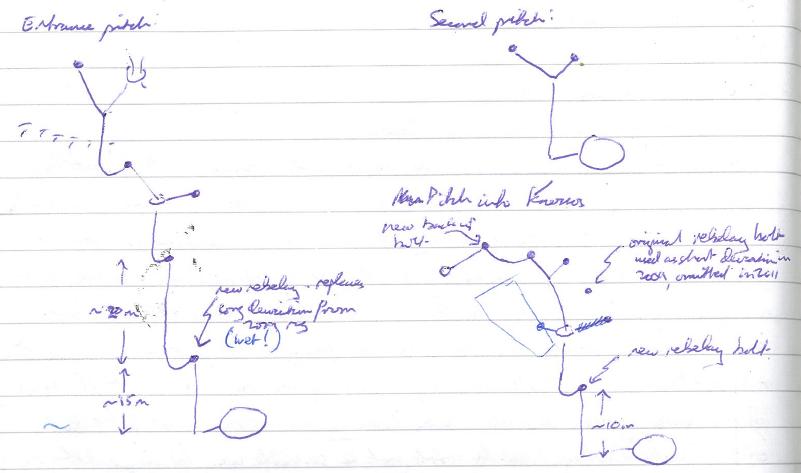 Entrance pitch:
~20m
new rebelay - replaces
long deviation from
2009 rig
(wet!)
~15m
Second pitch:
Pitch into Knossos
new backup
bolt
original rebelay bolt
used as short deviation in
2009, omitted in 2011
new rebelay bolt
~10m